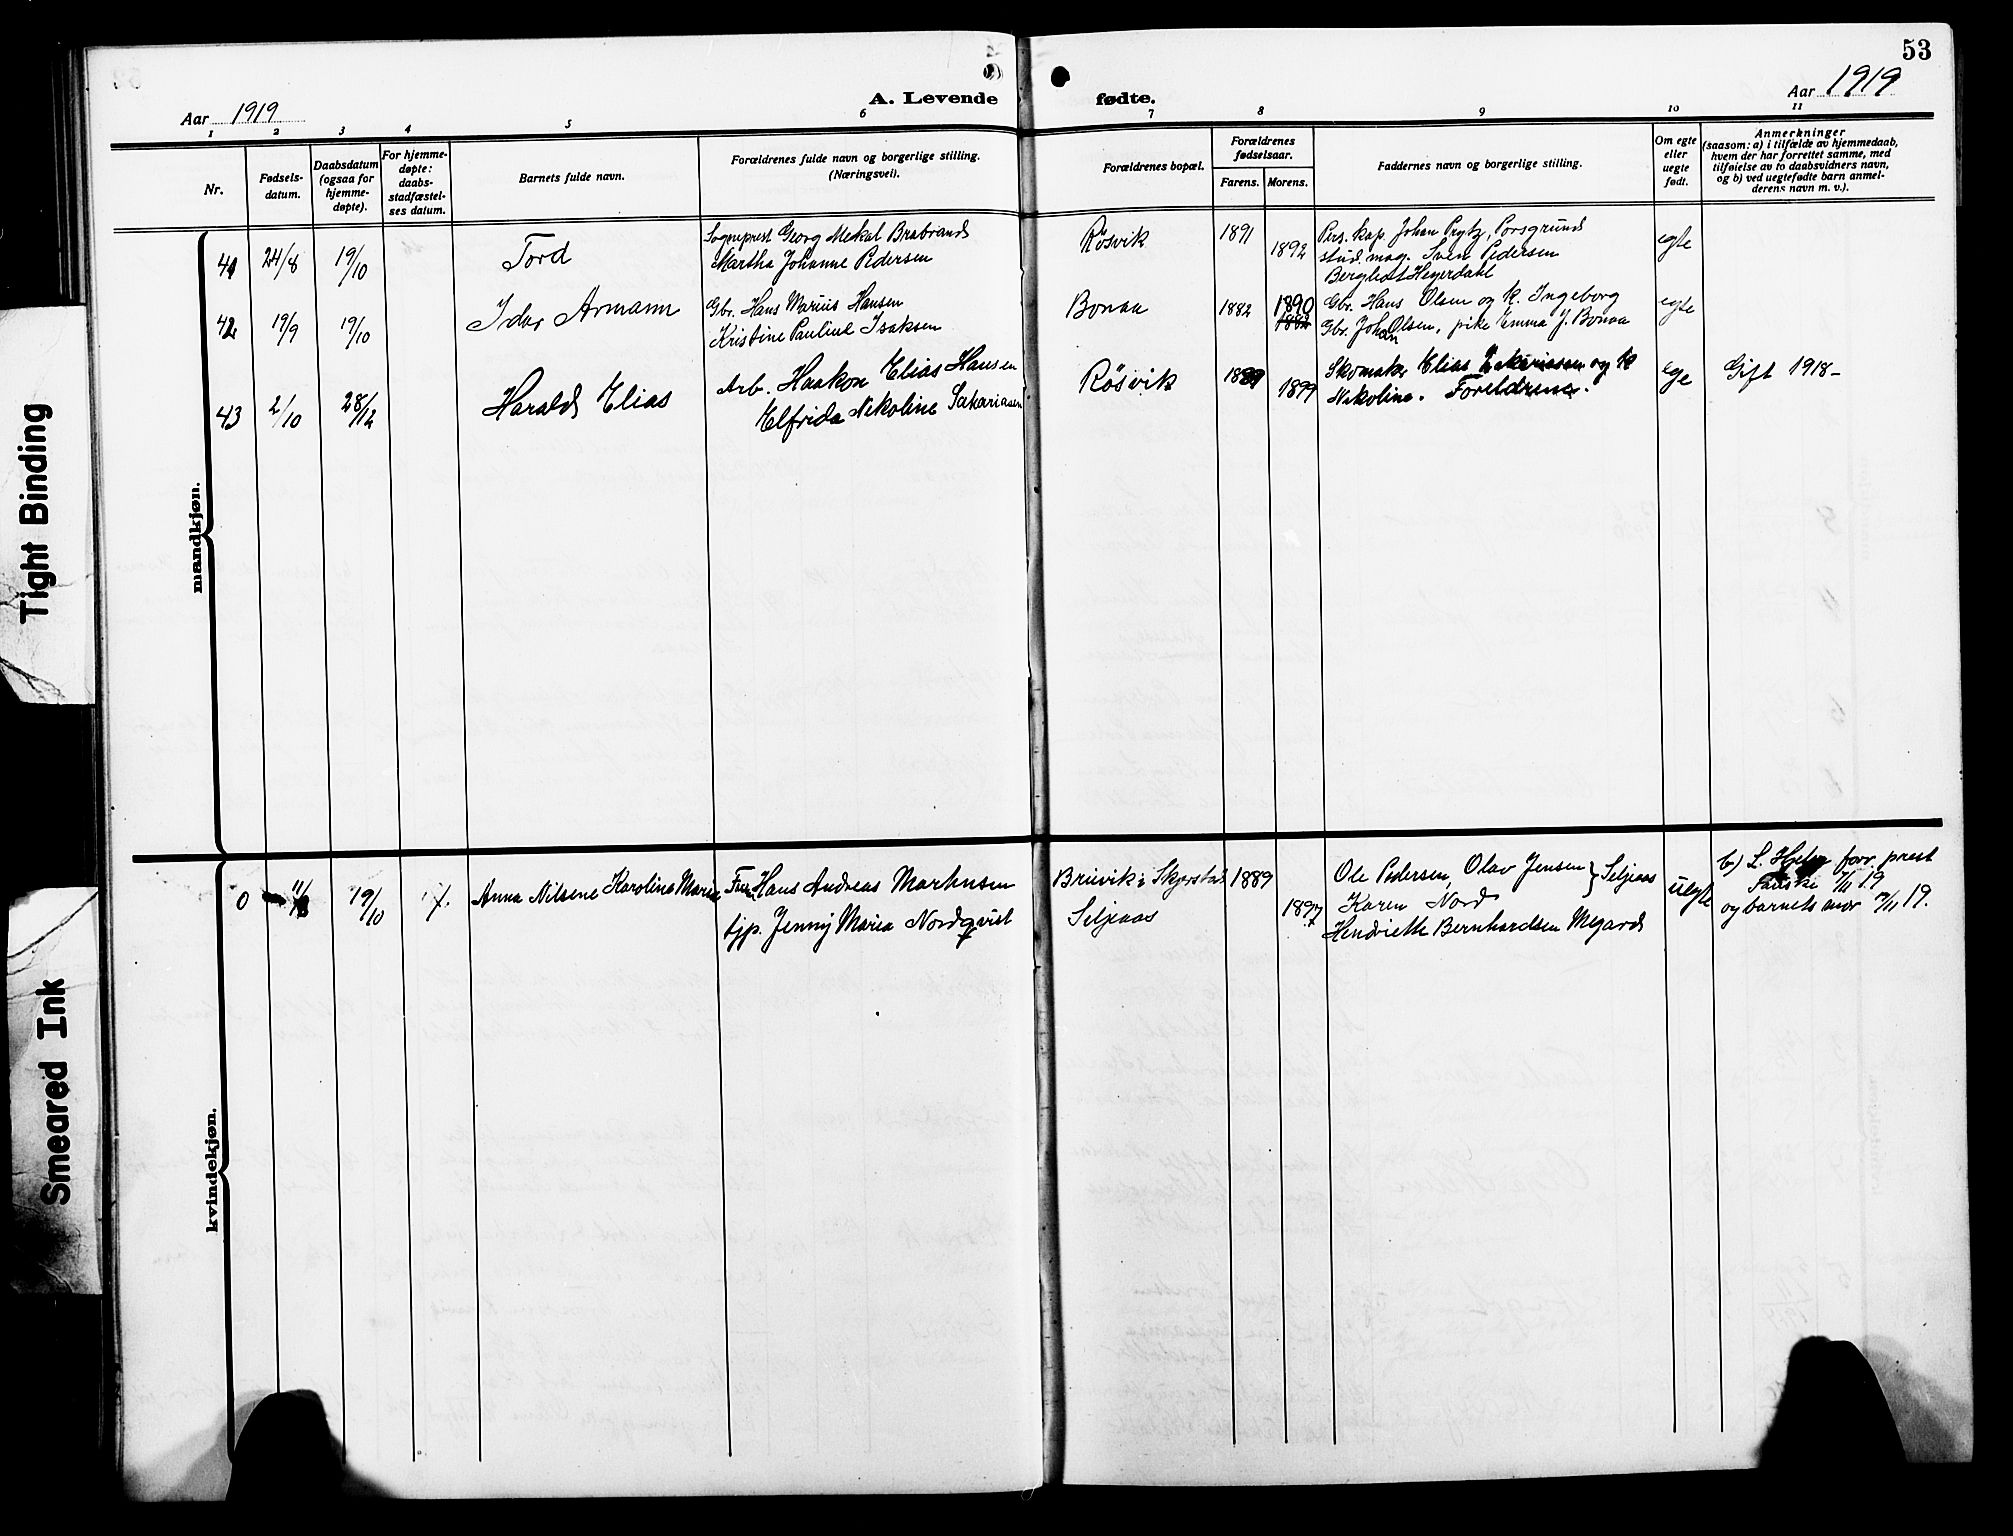 53
Aar 1919
A. Levende fødte.
Aar 1919
1 2 3 4 5 6 7 8 9 10 11
Nr.
Fødsels-
datum.
Daabsdatum
(ogsaa for
hjemme-
døpte).
For hjemme-
døpte:
daabs-
stadfæstel-
ses datum.
Barnets fulde navn.
Forældrenes fulde navn og borgerlige stilling.
(Næringsvei).
Forældrenes bopæl.
Forældrenes
fødselsaar.
Farens. Morens.
Faddernes navn og borgerlige stilling.
Om egte
eller
uegte
født.
Anmerkninger
(saasom: a) i tilfælde av hjemmedaab,
hvem der har forrettet samme, med
tilføielse av to daabsvidners navn,
og b) ved uegtefødte barn anmel-
derens navn m. v.).
mandkjøn.
41 24/8 19/10 Tord
Sogneprest Georg Mekal Brabrand
Martha Johanne Pedersen
Røsvik 1891 1892
Pers. kap. Johan Prytz, Porsgrund
stud. mag. Sven Pedersen
Bergliot Heyerdahl
egte
42 19/9 19/10 Idar Armann
Gbr. Hans Marius Hansen
Kristine Pauline Isaksen
Bonaa 1882 1890
1882
Gbr. Hans Olsen og K. Ingeborg
Gbr. Johan Olsen, pike Emma J. Bonaa
egte
43 2/10 28/12 Harald Elias
Arb. Haakon Elias Hansen
Elfrida Nikoline Sakariasen
Røsvik 1899
Skomaker Elias Zakariassen og K
Nikoline. Foreldrene.
ege
Gift 1918-
kvindekjøn.
0 19/10 Anna Nilsene Karoline Marie
Hans Andreas Martinsen
tjp. Jenny Maria Nordqvist
Bruvik i Skjerstad
Seljeaas
1889 1897
Ole Pedersen, Olav Jensen } Seljeaas
Karen Nord
Henriette Bernhardsen Megard
uegte
b) L. forr. prest
Fauske 19
og barnets mor 19.
Tight Binding
Smeared Ink